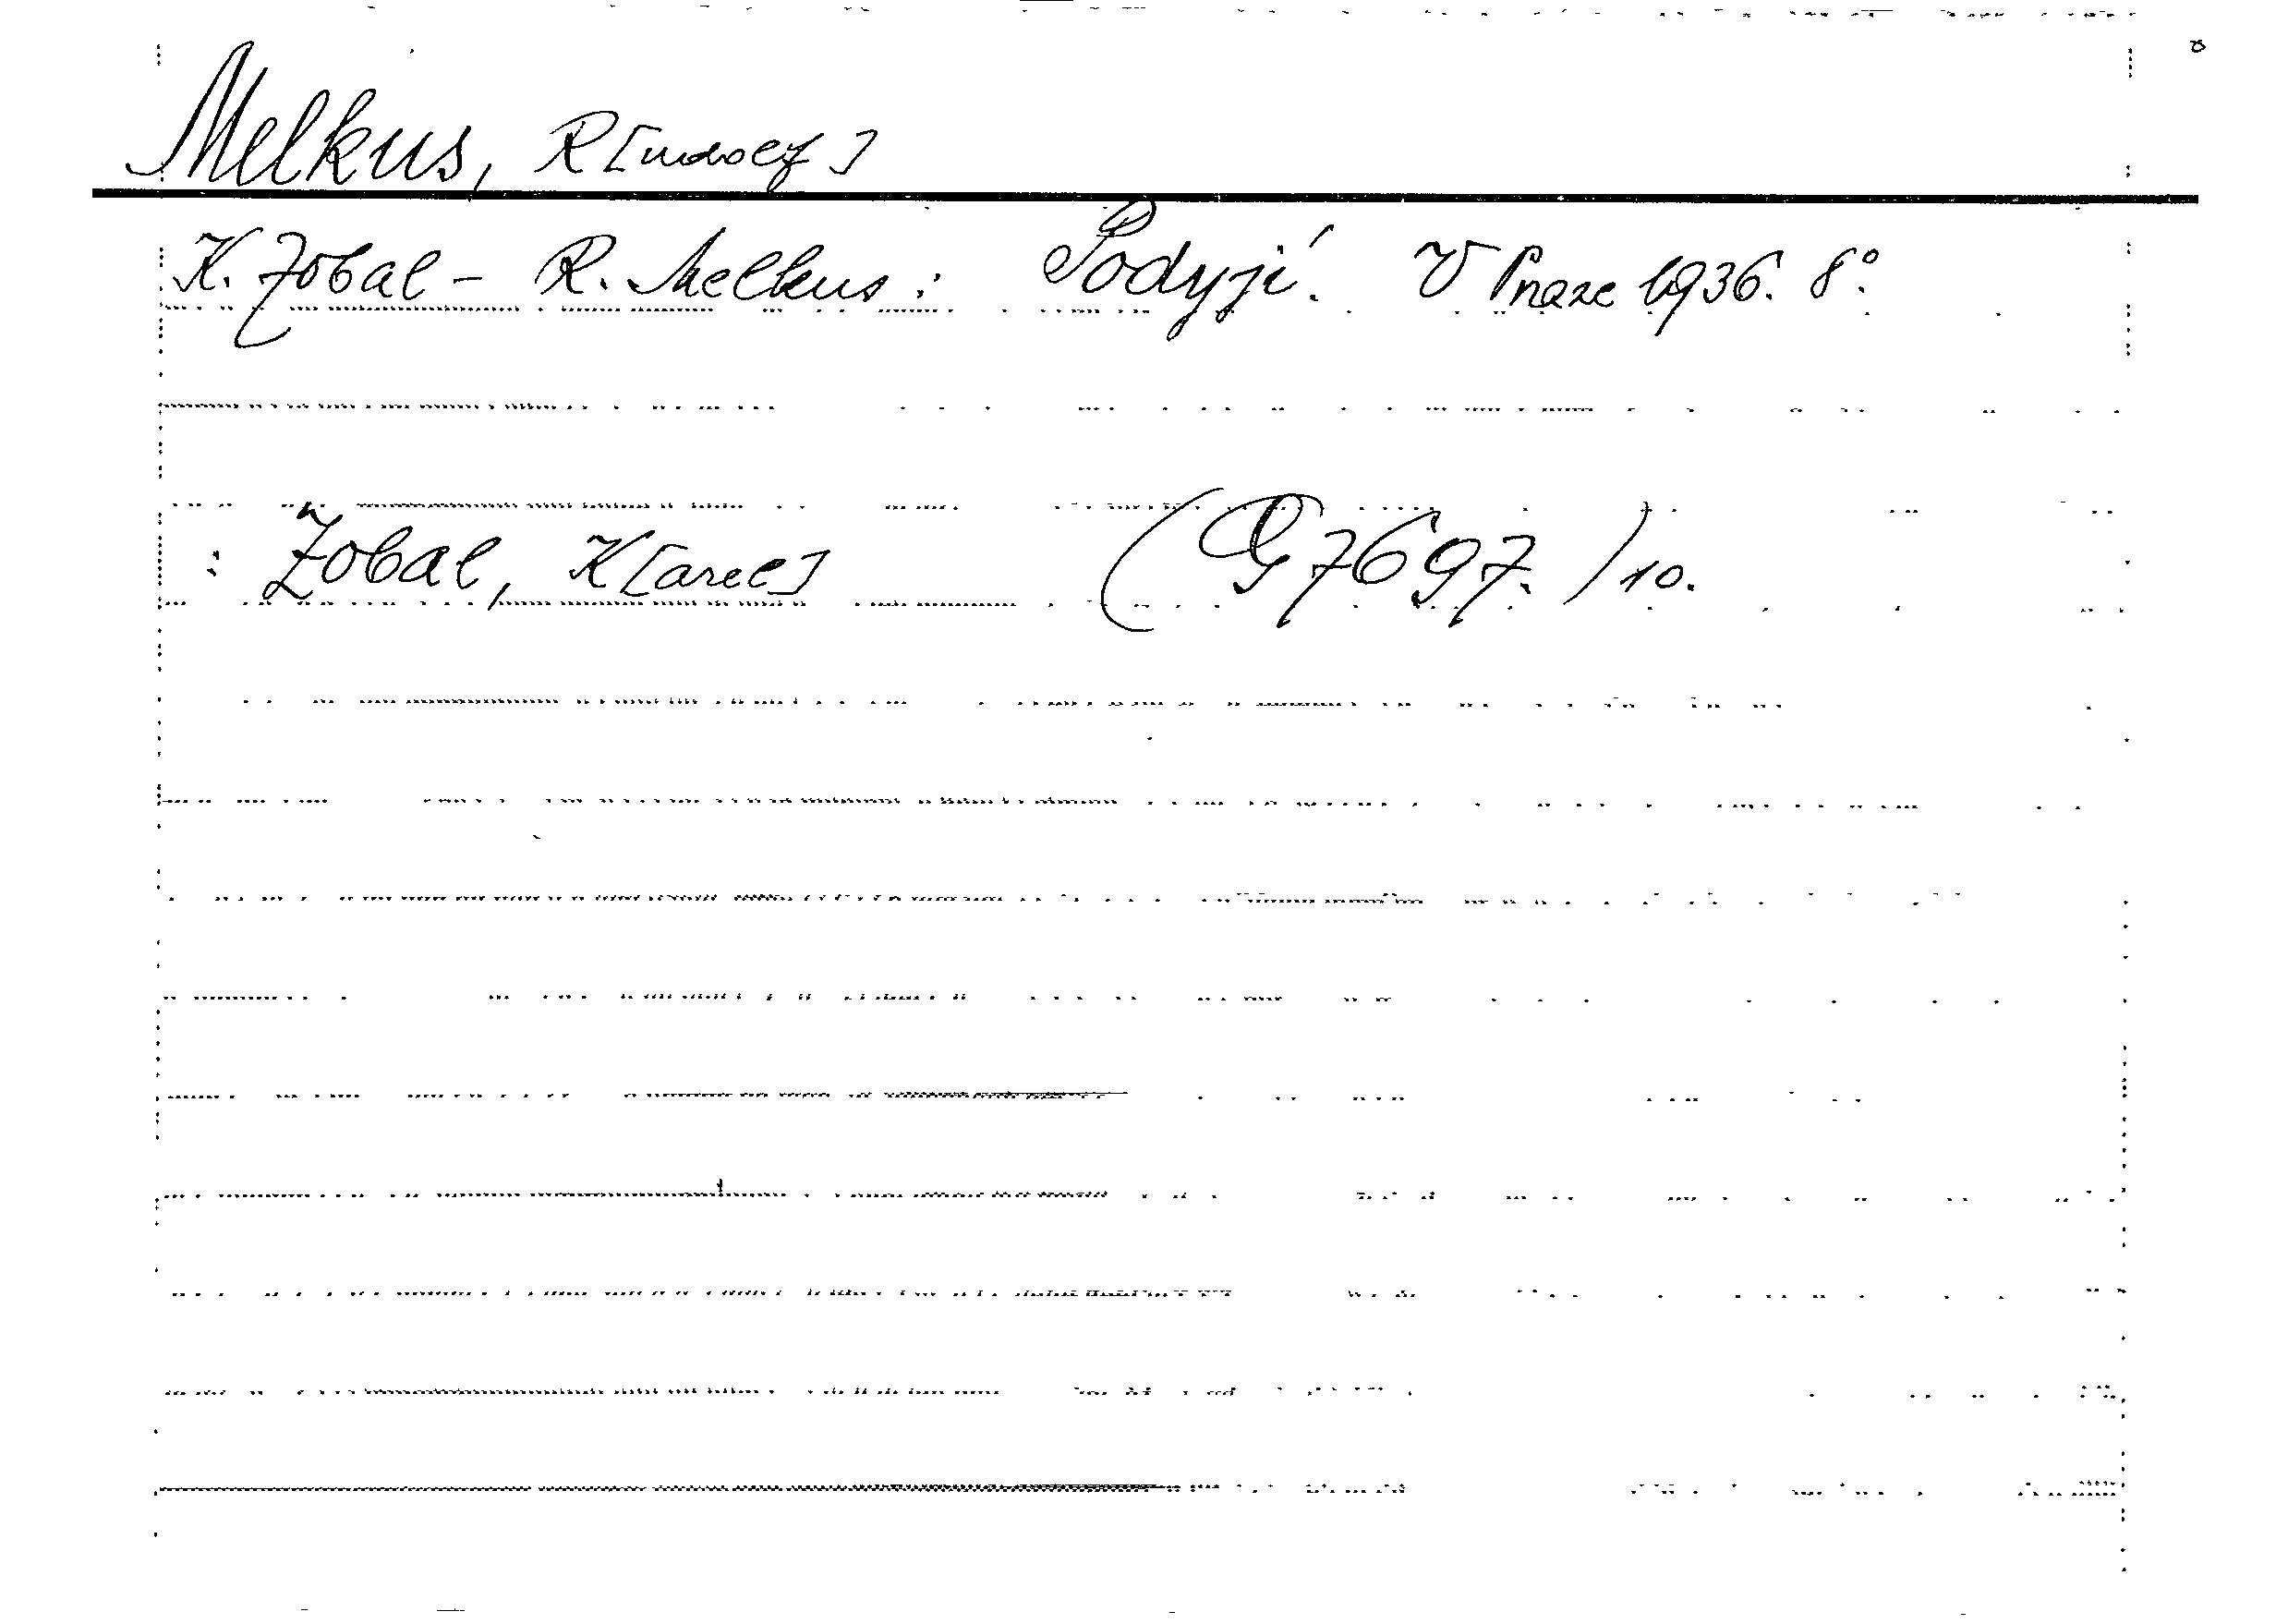 Melkus, R[udolf]
K. Zobal - R. Melkus: Podyjí. V Praze 1936. 8°.
: Zobal, K[arel] (G 7697.)/10.